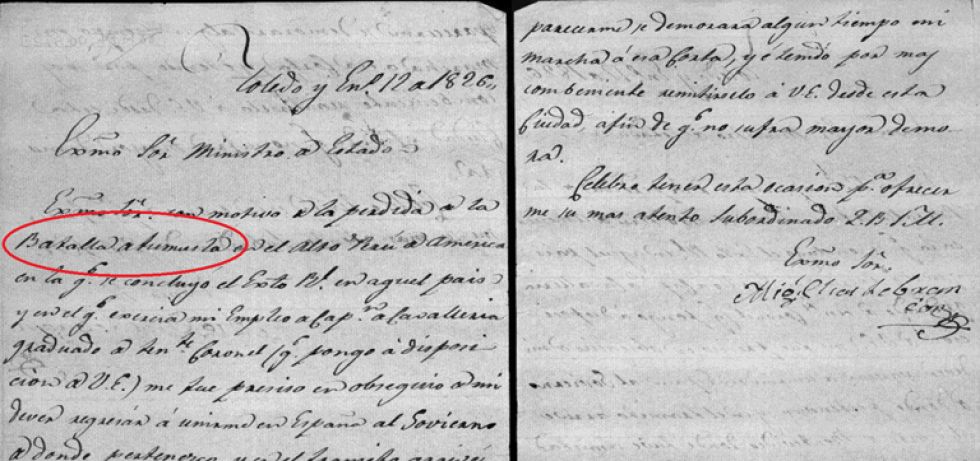 Toledo y En.º 12 a 1826,,
Exmo Sor Ministro a Estado
Exmo Sor. con motivo a la perdida a la
Batalla a tumusla en el Alto Perú a America
en la q.e se concluyó el Exto Rl. en aquel pais
y en el q.e exercia mi Empleo a Cap.n a Cavalleria
graduado a ten.te Coronel (q.e pongo á disposi
cion a V.E.) me fue presiso en obsequio a mi
dever regresár á unirme en España al Govierno
a donde pertenezco, y en el
parecerme se demorará algun tiempo mi
marcha á esa Corte, y é tenido por mas
combeniente remitirselo á V.E. desde esta
Ciudad, afin de q.e no sufra mayor demo
ra.
Celebro tener esta ocasion p.a ofrecer
me su mas atento subordinado Q.B.S.M.
Exmo Sor.